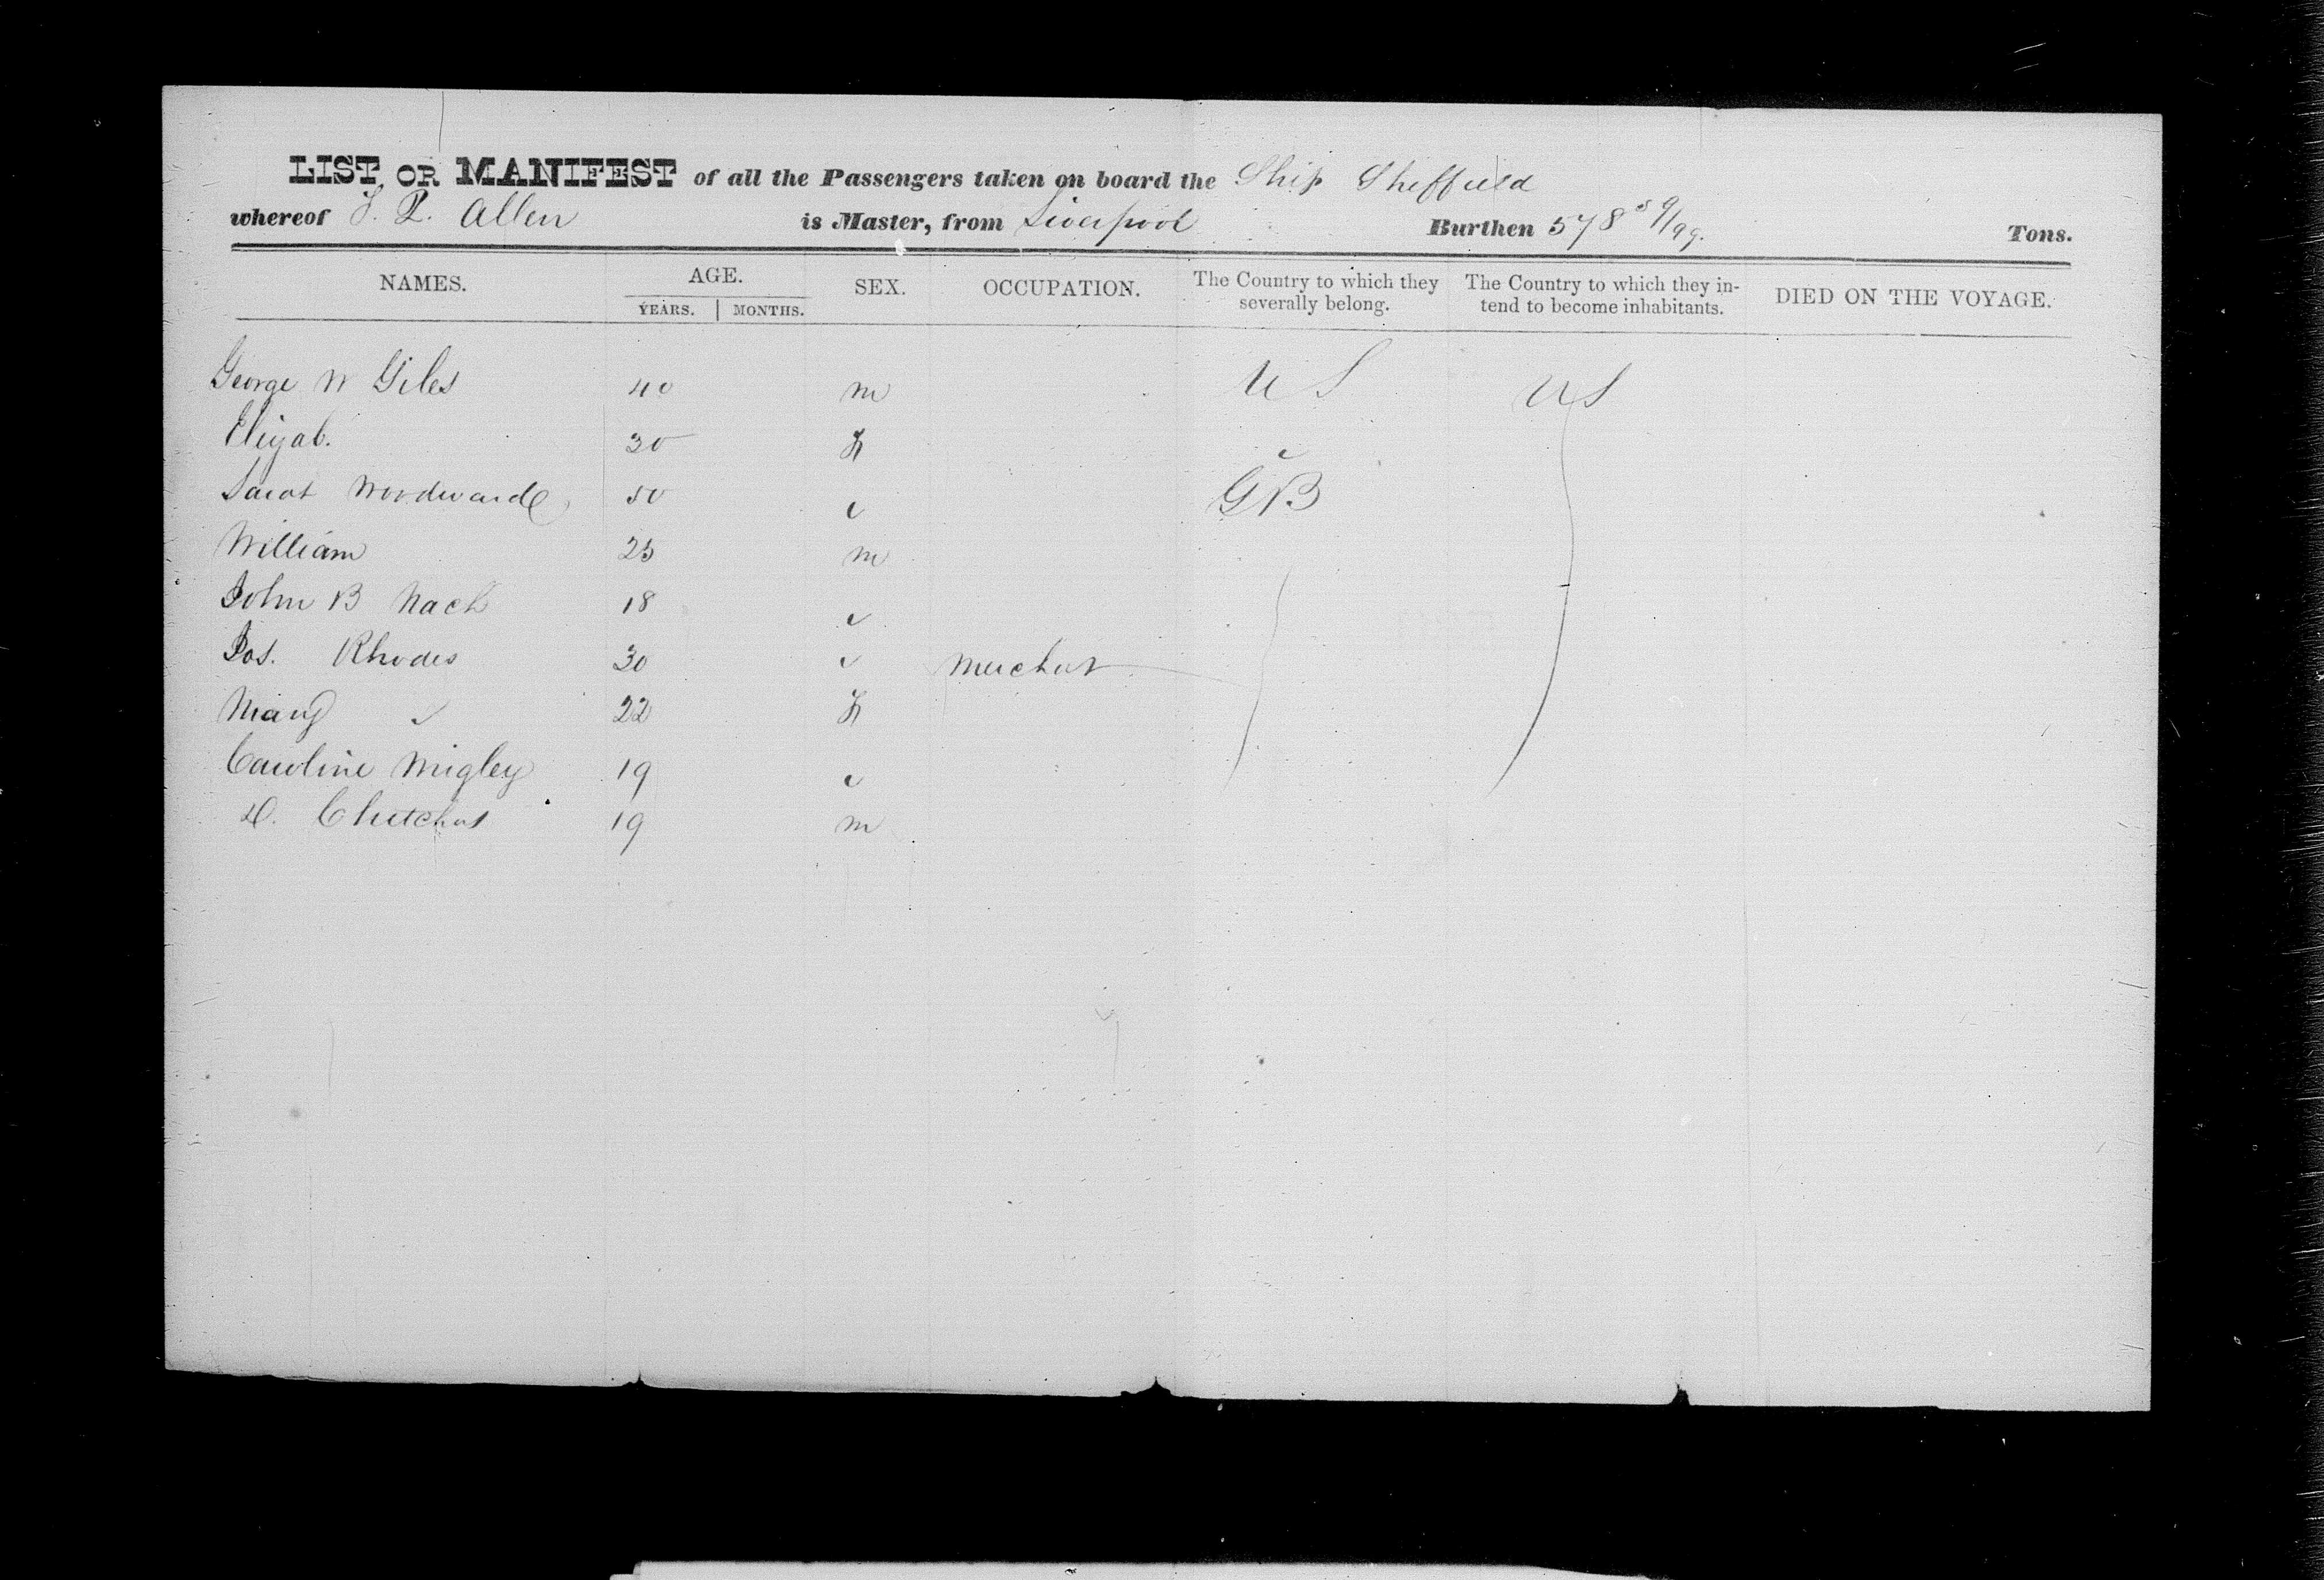 LIST OR MANIFEST of all the Passengers taken on board the Ship Sheffield
whereof F. P. Allen is Master, from Liverpool Burthen 578 59/95 Tons.
NAMES. AGE. SEX. OCCUPATION. The Country to which they severally belong. The Country to which they intend to become inhabitants. DIED ON THE VOYAGE.
YEARS. MONTHS.
George W Giles 40 m U S U S
Elizab. 30 F "
Sarah Woodward 50 " G B
William 25 m
John B Nach 18 "
Jos. Rhodes 30 " Merchant
Mary " 22 F
Caroline Migley 19 "
D. 19 m